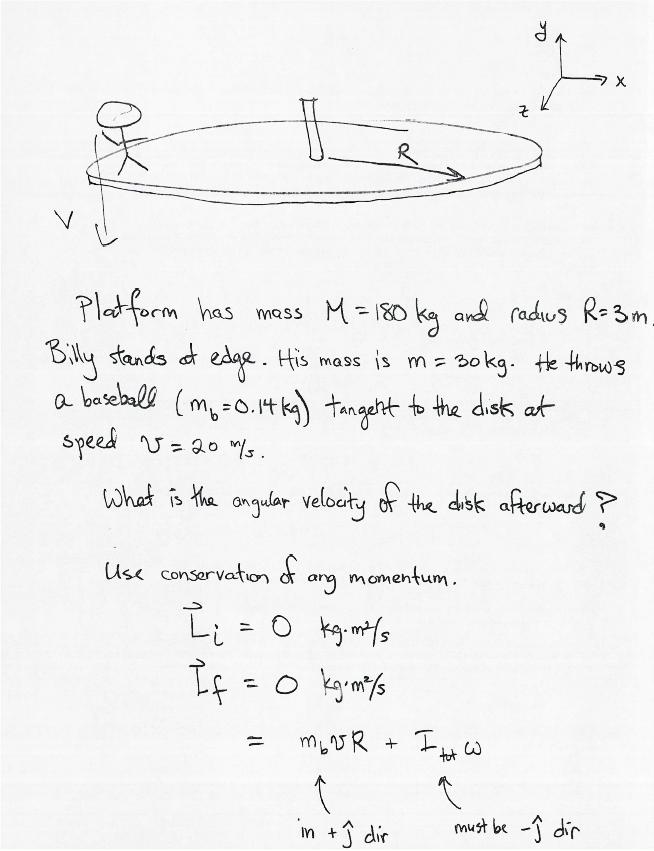 y
x
z
R
V
Platform has mass M = 180 kg and radius R = 3 m.
Billy stands at edge. His mass is m = 30 kg. He throws
a baseball (m_b = 0.14 kg) tangent to the disk at
speed v = 20 m/s.
What is the angular velocity of the disk afterward?
Use conservation of ang momentum.
L⃗_i = 0 kg·m²/s
L⃗_f = 0 kg·m²/s
= m_b v R + I_tot ω
in +ĵ dir must be -ĵ dir